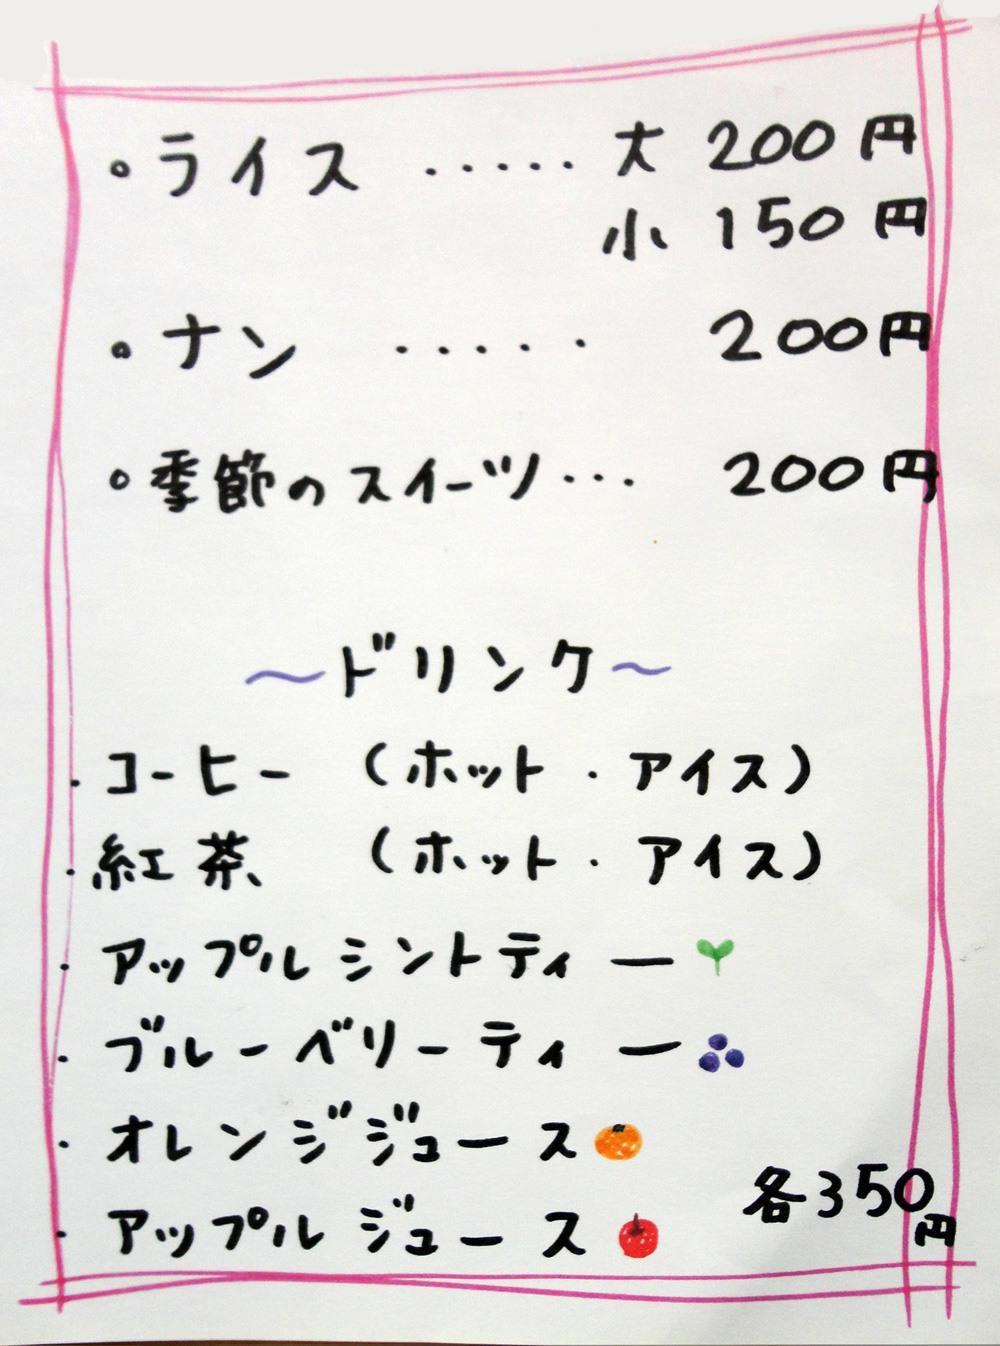 。ライス ・・・・・ 大 200円
小 150円
。ナン ・・・・・ 200円
。季節のスイーツ・・・ 200円
〜ドリンク〜
・コーヒー (ホット・アイス)
・紅茶 (ホット・アイス)
・アップルシントティー
・ブルーベリーティー
・オレンジジュース
・アップルジュース
各350円